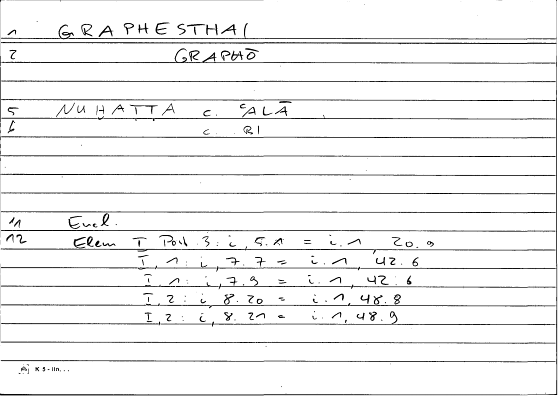 1 GRAPHESTHAI
2 GRAPHŌ
5 NUḪAṬṬA c. ʿALĀ
6 c. BI
11 Eucl.
12 Elem I Post 3: i, 5.1 = i.1, 20.9
I, 1: i, 7.7 = i.1, 42.6
I, 1: i, 7.9 = i.1, 42.6
I, 2: i, 8.20 = i.1, 48.8
I, 2: i, 8.21 = i.1, 48.9